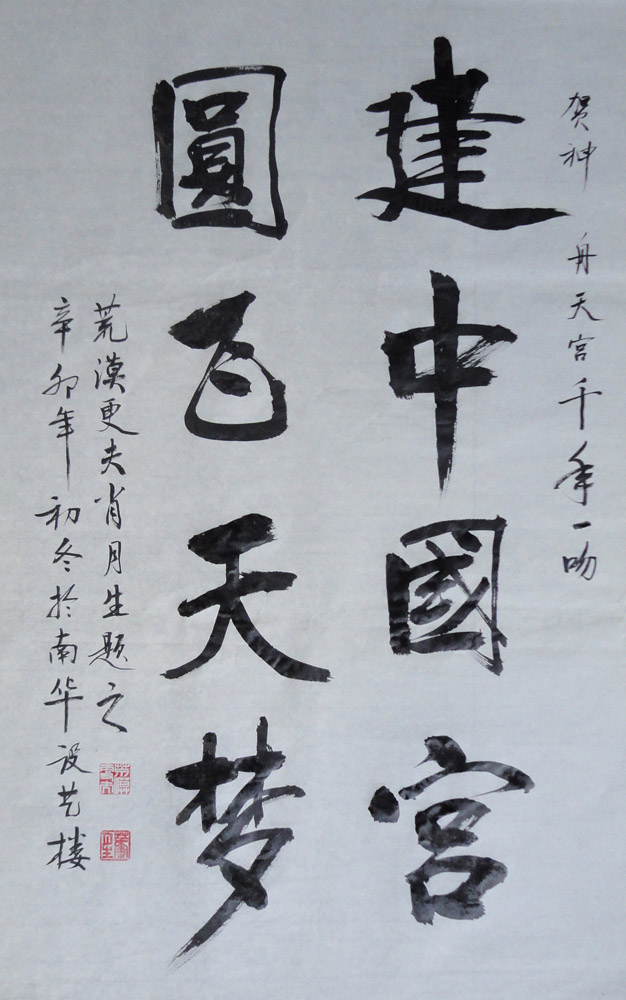 贺神舟天宫千年一吻
建中國宮
圓飞天梦
荒漠更夫肖月生题之
辛卯年初冬於南华设艺楼